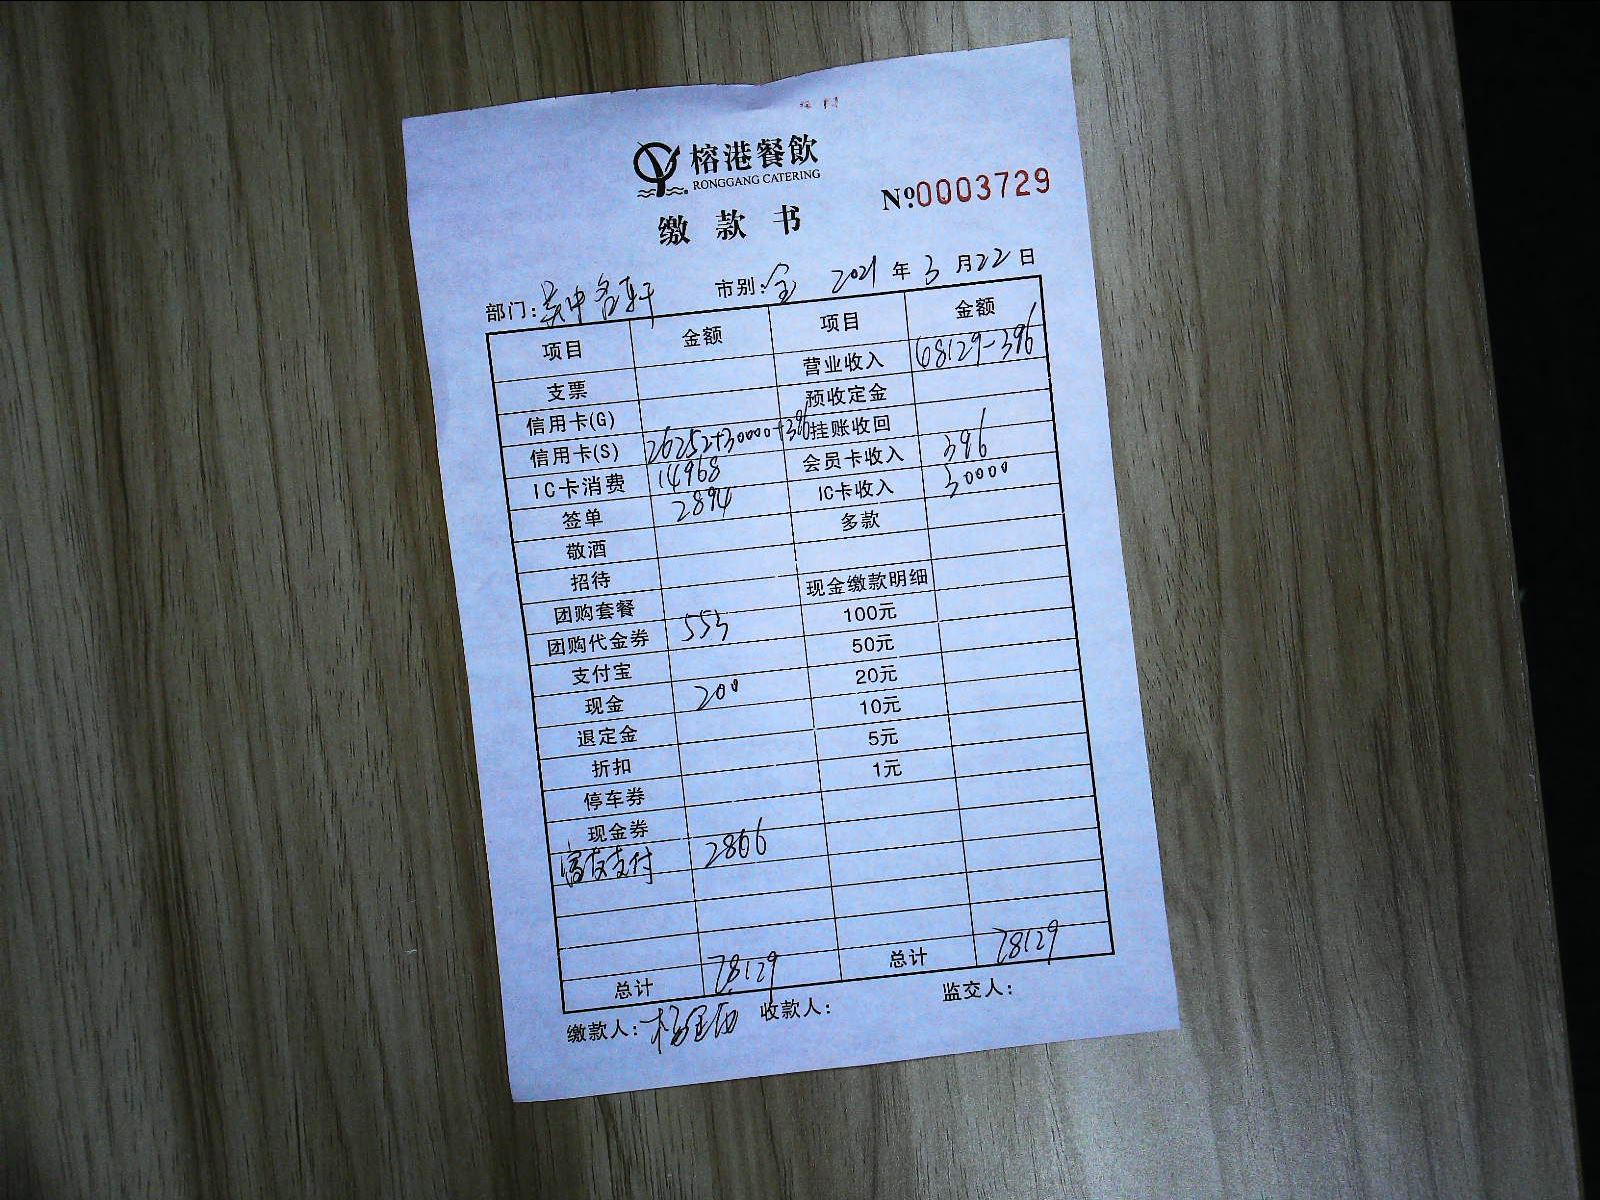 榕港餐飲
RONGGANG CATERING
№0003729
缴款书
部门: 市别:全 2021年3月22日
项目 金额 项目 金额
支票 营业收入 68129-396
信用卡(G) 预收定金
信用卡(S) 26252+30000+396 挂账收回
IC卡消费 14968 会员卡收入 396
签单 2894 IC卡收入 30000
敬酒 多款
招待
团购套餐 现金缴款明细
团购代金券 553 100元
支付宝 50元
现金 200 20元
退定金 10元
折扣 5元
停车券 1元
现金券
富友支付 2866
总计 78129 总计 78129
缴款人: 收款人: 监交人: